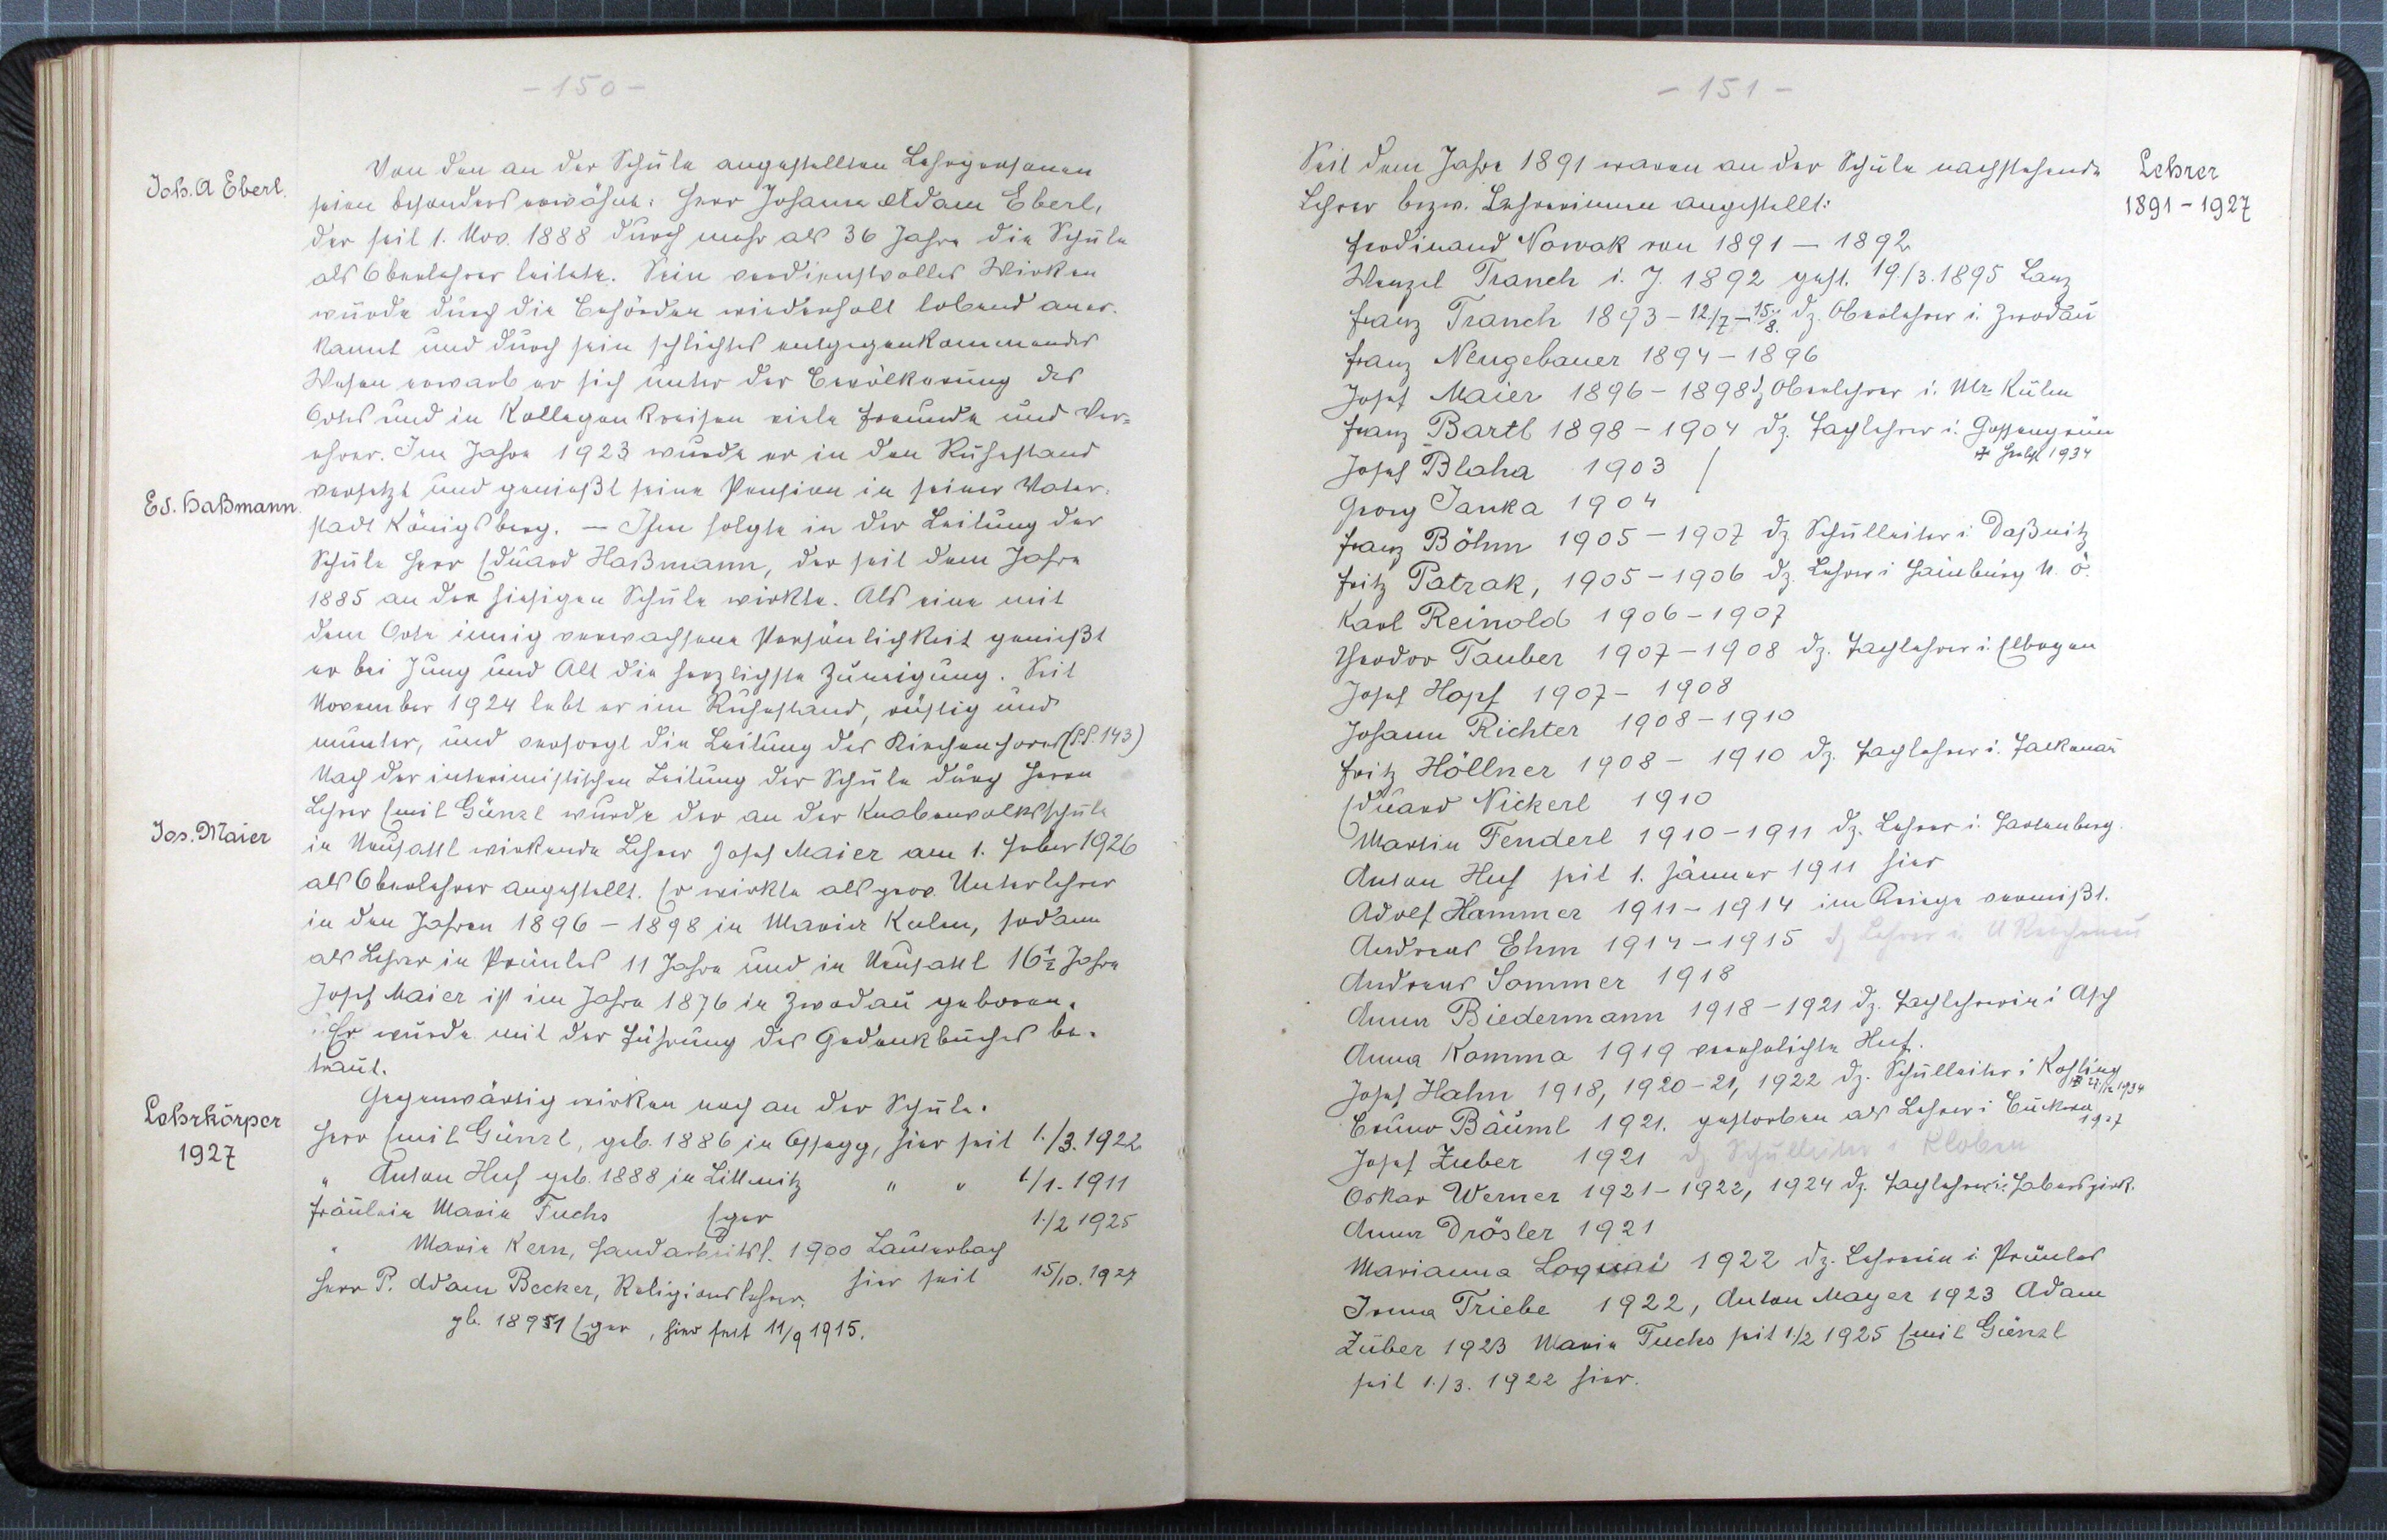 - 150 -
Joh. A Eberl.
Von den an der Schule angestellten Lehrpersonen
seien besonders erwähnt: Herr Johann Adam Eberl,
der seit 1. Nov. 1888 durch mehr als 36 Jahre die Schule
als Oberlehrer leitete. Sein verdienstvolles Wirken
wurde durch die Behörden wiederholt lobend aner-
kannt und durch sein schlichtes entgegenkommendes
Wesen erwarb er sich unter der Bevölkerung des
Ortes und in Kollegenkreisen viele Freunde und Ver-
ehrer. Im Jahre 1923 wurde er in den Ruhestand
versetzt und genießt seine Pension in seiner Vater-
Ed. Haßmann
stadt Königsberg. — Ihm folgte in der Leitung der
Schule Herr Eduard Haßmann, der seit dem Jahre
1885 an der hiesigen Schule wirkte. Als eine mit
dem Orte innig verwachsene Persönlichkeit genießt
er bei Jung und Alt die herzlichste Zuneigung. Seit
November 1924 lebt er im Ruhestand, rüstig und
munter, und versorgt die Leitung des Kirchenchores (S. 143)
Nach der interimistischen Leitung der Schule durch Herrn
Lehrer Emil Günzl wurde der an der Knabenvolksschule
Jos. Maier
in Neusattl wirkende Lehrer Josef Maier am 1. Feber 1926
als Oberlehrer angestellt. Er wirkte als prov. Unterlehrer
in den Jahren 1896 - 1898 in Maria Kulm, sodann
als Lehrer in Prünles 11 Jahre und in Neusattl 16½ Jahre
Josef Maier ist im Jahre 1876 in Zwodau geboren.
Er wurde mit der Führung des Gedenkbuches be-
traut.
Lehrkörper
1927
Gegenwärtig wirken noch an der Schule.
Herr Emil Günzl, geb. 1886 in Ossegg, hier seit 1./3. 1922
" Anton Huf geb. 1888 in Littmitz " " 1/1. 1911
Fräulein Maria Fuchs Eger 1./2 1925
" Maria Kern, Handarbeitsl. 1900 Lauterbach
hier seit 15/10. 1927
Herr P. Adam Becker, Religionslehrer.
gb. 1891 Eger, hier seit 11/9 1915.
- 151 -
Lehrer
1891 - 1927
Seit dem Jahre 1891 waren an der Schule nachstehende
Lehrer bezw. Lehrerinnen angestellt:
Ferdinand Nowak von 1891 — 1892
Wenzel Tranch i. J. 1892 gest. 19./3. 1895 Lanz
Franz Tranch 1893 - 12./7 - 15./8. dz. Oberlehrer i. Zwodau
Franz Neugebauer 1894 - 1896
Josef Maier 1896 - 1898 dz Oberlehrer i. Mr. Kulm
Franz Bartl 1898 - 1904 dz. Fachlehrer i. Gossengrün
Josef Blaha 1903 / ✠ Herbst 1934
Georg Janka 1904
Franz Böhm 1905 - 1907 dz Schulleiter i. Daßnitz
Fritz Patzak, 1905 - 1906 dz. Lehrer i Hainburg N. Ö.
Karl Reinold 1906 - 1907
Theodor Tauber 1907 - 1908 dz. Fachlehrer i. Elbogen
Josef Hopf 1907 - 1908
Johann Richter 1908 - 1910
Fritz Höllner 1908 - 1910 dz. Fachlehrer i. Falkenau
Eduard Nickerl 1910
Martin Fenderl 1910 - 1911 dz. Lehrer i. Hartenberg.
Anton Huf seit 1. Jänner 1911 hier
Adolf Hammer 1911 - 1914 im Kriege vermißt.
Andreas Ehm 1914 - 1915 dz Lehrer i.
Andreas Sommer 1918
Anna Biedermann 1918 - 1921 dz. Fachlehrerin i Asch
Anna Komma 1919 verehelichte Huf.
Josef Hahn 1918, 1920 - 21, 1922 dz. Schulleiter i Kösling
1934
Bruno Bäuml 1921. gestorben als Lehrer i Buckwa
1927
Josef Zuber 1921 dz Schulleiter i Kloben
Oskar Werner 1921 - 1922, 1924 dz. Fachlehrer i. Haberspirk.
Anna Drösler 1921
Marianna Loquai 1922 dz. Lehrerin i. Prünles
Irma Triebe 1922, Anton Mayer 1923 Adam
Zuber 1923 Maria Fuchs seit 1./2 1925 Emil Günzl
seit 1./3. 1922 hier.